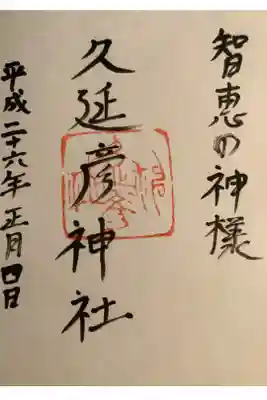 智恵の神様
久延彦神社
平成二十六年 正月四日